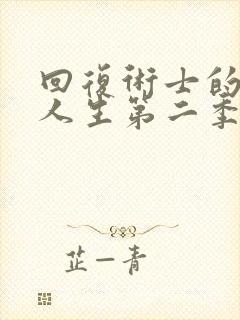 回復術士的
人生第二季
芷一青